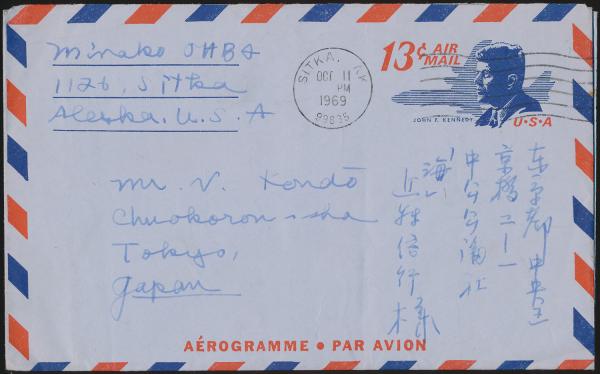 Minako OHBA
1126, Sitka
Alaska, U.S.A
SITKA, AK
OCT 11
PM
1969
99835
13¢ AIR
MAIL
JOHN F. KENNEDY
U·S·A
Mr. N. Kondō
Chuokoron-sha
Tokyo,
Japan
东京都 中央区
京橋二ー一
中央公論社
海
近藤信行様
AÉROGRAMME • PAR AVION